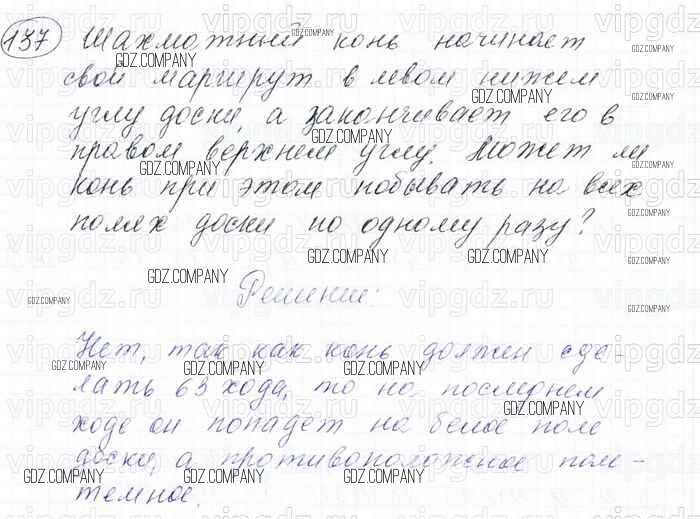 137 Шахматный конь начинает
свой маршрут в левом нижнем
углу доски, а заканчивает его в
правом верхнем углу. Может ли
конь при этом побывать на всех
полях доски по одному разу?
Решение:
Нет, так как конь должен сде-
лать 63 хода, то на последнем
ходе он попадёт на белое поле
доски, а противоположное поле –
темное.